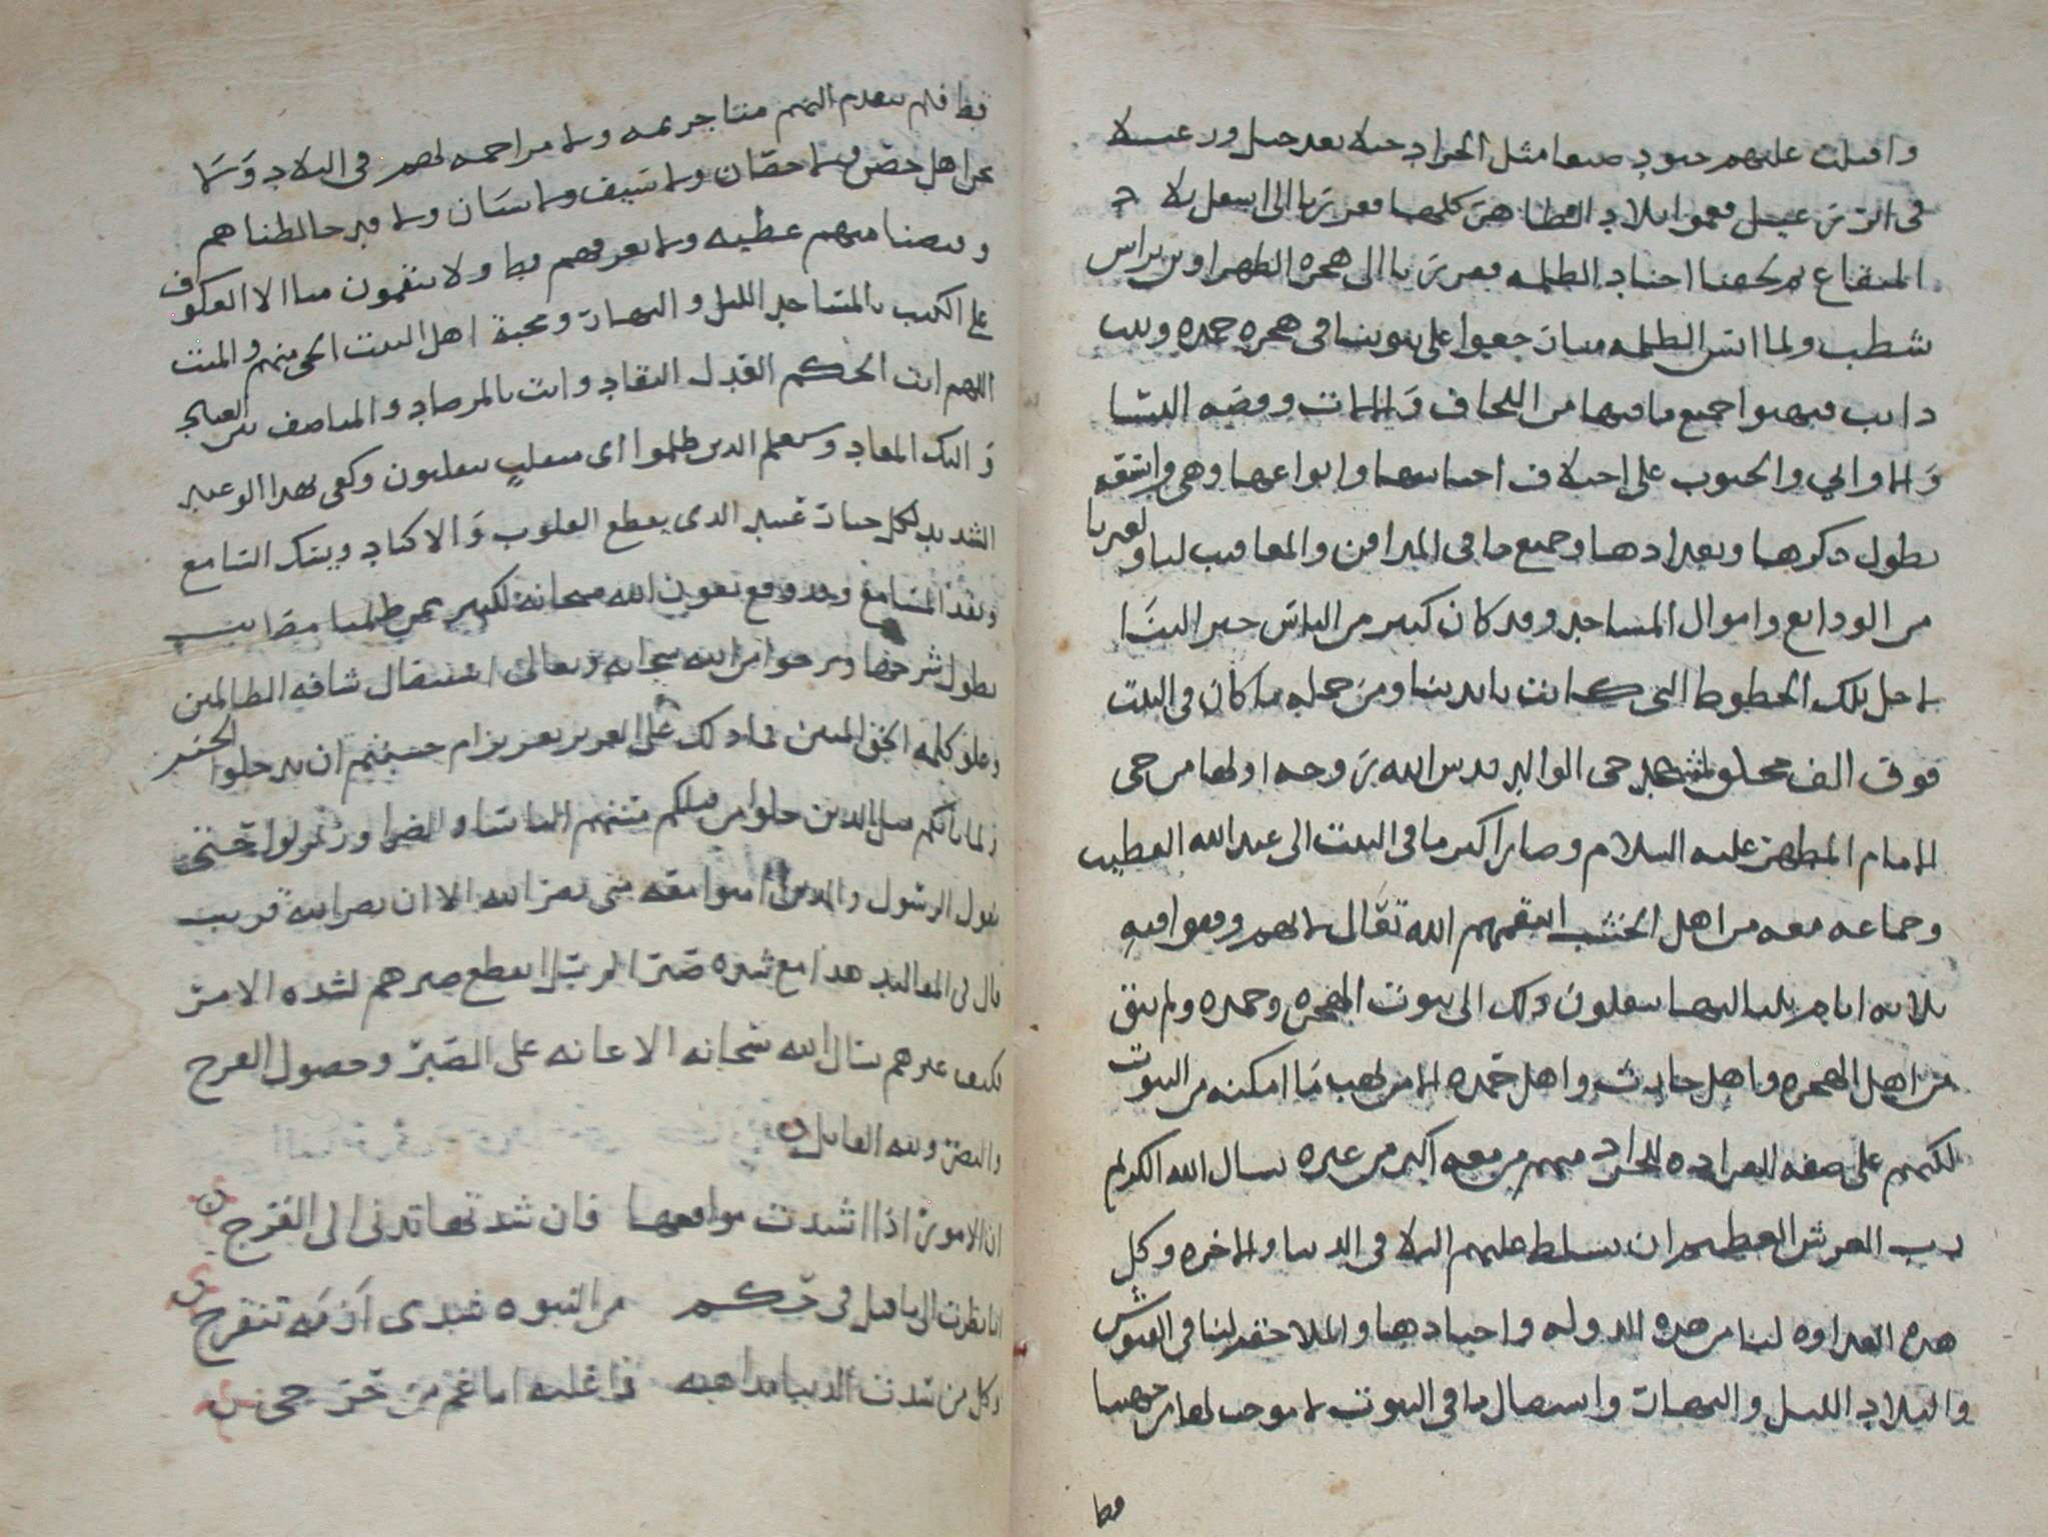 واقبلت عليهم جنود صنعا مثل الجراد جيلا بعد جيل ورعيلا
في اثر رعيل فعموا بلاد الظاهر كلها فعزبنا الى اسفل بلاد
المنقاع ثم لحقنا اجناد الظلمه فعزبنا الى هجره الظهراوين براس
شطب ولما ايس الظلمه منا رجعوا على بيوتنا في هجره حمده وبيت
دايب فنهبوا جميع ما فيها من اللحاف والاثاث وفضه النسا
والاواني والحبوب على اختلاف اجناسها وانواعها وهي واسعه
يطول ذكرها وتعدادها وجميع ما في المدافن والمعاقيب لنا ولغيرنا
من الودايع واموال المساجد وقد كان كثير من الناس خبر الينا
لاجل تلك الخطوط التي كانت بايدينا ومن جمله ما كان في البيت
فوق الف مجلد حى الوالد قدس الله روحه اولها من حى
الامام المطهر عليه السلام وصار اكثر ما في البيت الى عبد الله القطيب
وجماعه معه من اهل الخشب امحقهم الله تعالى وقعوا فيه
ثلاثه ايام بلياليها ينقلون ذلك الى بيوت الهجره وحمده ولم يبق
من اهل الهجره واهل حارث واهل حمده الا من نهب ما امكنه من البيوت
لكنهم على صفه الجراد منهم من معه اكثر من غيره نسال الله الكريم
رب العرش العظيم ان يسلط عليهم البلا في الدنيا والاخره وكل
هذه العداوه لنا من هذه الدوله واجنادها والملاحقه لنا في العشوش
والبلاد الليل والنهار واستيصال ما في البيوت لا موجب لها من جهتنا
قط
قط فلم يتقدم اليهم منا جريمه ولا مزاحمه لهم في البلاد ولا
نحن اهل حصن ولا حصان ولا سيف ولا سنان ولا قد خالطناهم
وقبضنا منهم عطيه ولا نعرفهم قط ولا ينقمون منا الا العكوف
على الكتب بالمساجد الليل والنهار ومحبة اهل البيت الحي منهم والميت
اللهم انت الحكم العدل النقاد وانت بالمرصاد والمناصف بين العباد
واليك المعاد وسيعلم الذين ظلموا اي منقلب ينقلبون وكفى بهذا الوعيد
الشديد لكل جبار عنيد الذي يقطع القلوب والاكباد ويبتك السامع
وينفذ المسامع وقد وقع بعون الله سبحانه لكثير ممن ظلمنا مصايب
يطول شرحها ونرجوا من الله سبحانه وتعالى استيصال شافه الظالمين
وعلو كلمه الحق المبين فما ذلك على العزيز بعزيز ام حسبتم ان تدخلوا الجنه
ولما ياتكم مثل الذين خلوا من قبلكم مستهم الباسا والضرا وزلزلوا حتى
يقول الرسول والذين امنوا معه متى نصر الله الا ان نصر الله قريب
قال في المقاليد هذا مع شده صبر الرسل انقطع صبرهم لشده الامر
فكيف غيرهم نسال الله سبحانه الاعانه على الصبر وحصول الفرج
والنصر ولله القايل
ان الامور اذا اشتدت مواقعها فان شدتها تدني الى الفرج
انا نظرت الى ما قيل في حكم من النبوه شتدي ازمه تنفرج
وكل من شدت الدنيا مذاهبه